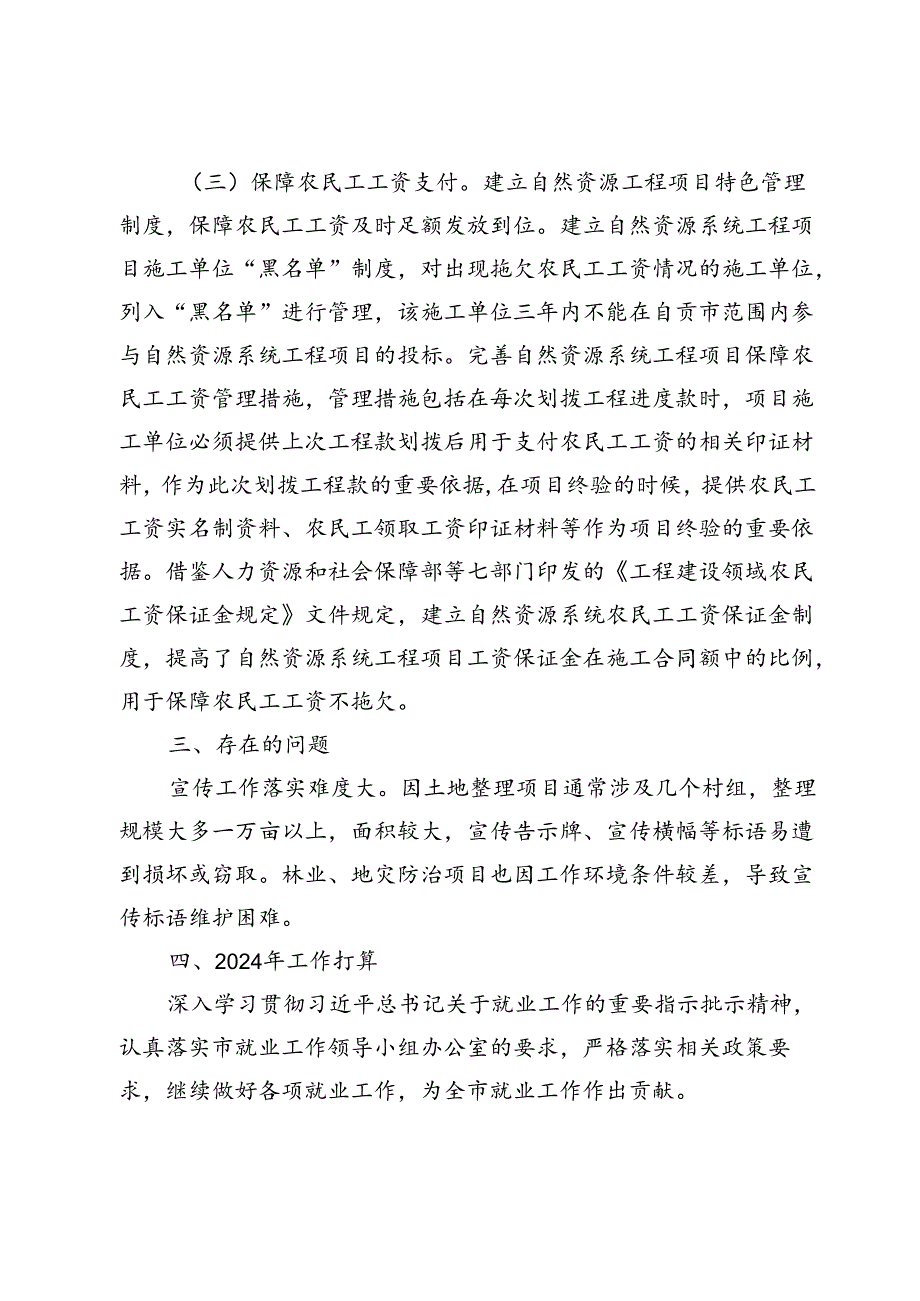 （三）保障农民工工资支付。建立自然资源工程项目特色管理
制度，保障农民工工资及时足额发放到位。建立自然资源系统工程项
目施工单位“黑名单”制度，对出现拖欠农民工工资情况的施工单位，
列入“黑名单”进行管理，该施工单位三年内不能在自贡市范围内参
与自然资源系统工程项目的投标。完善自然资源系统工程项目保障农
民工工资管理措施，管理措施包括在每次划拨工程进度款时，项目施
工单位必须提供上次工程款划拨后用于支付农民工工资的相关印证材
料，作为此次划拨工程款的重要依据，在项目终验的时候，提供农民工
工资实名制资料、农民工领取工资印证材料等作为项目终验的重要依
据。借鉴人力资源和社会保障部等七部门印发的《工程建设领域农民
工资保证金规定》文件规定，建立自然资源系统农民工工资保证金制
度，提高了自然资源系统工程项目工资保证金在施工合同额中的比例，
用于保障农民工工资不拖欠。
三、存在的问题
宣传工作落实难度大。因土地整理项目通常涉及几个村组，整理
规模大多一万亩以上，面积较大，宣传告示牌、宣传横幅等标语易遭
到损坏或窃取。林业、地灾防治项目也因工作环境条件较差，导致宣
传标语维护困难。
四、2024年工作打算
深入学习贯彻习近平总书记关于就业工作的重要指示批示精神，
认真落实市就业工作领导小组办公室的要求，严格落实相关政策要
求，继续做好各项就业工作，为全市就业工作作出贡献。